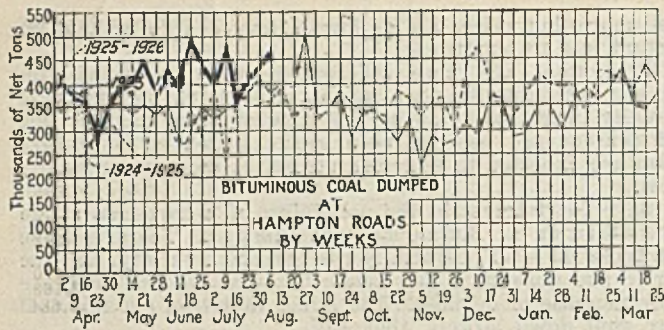 550
500
450
400
350
300
250
200
150
100
50
0
Thousands of Net Tons
1925-1926
1924-1925
BITUMINOUS COAL DUMPED
AT
HAMPTON ROADS
BY WEEKS
2 16 30 14 28 11 25 9 23 6 20 3 17 1 15 29 12 26 10 24 7 21 4 18 4 18
9 23 7 21 4 18 2 16 30 13 27 10 24 8 22 5 19 3 17 31 14 28 11 25 11 25
Apr. May June July Aug. Sept. Oct. Nov. Dec. Jan. Feb. Mar